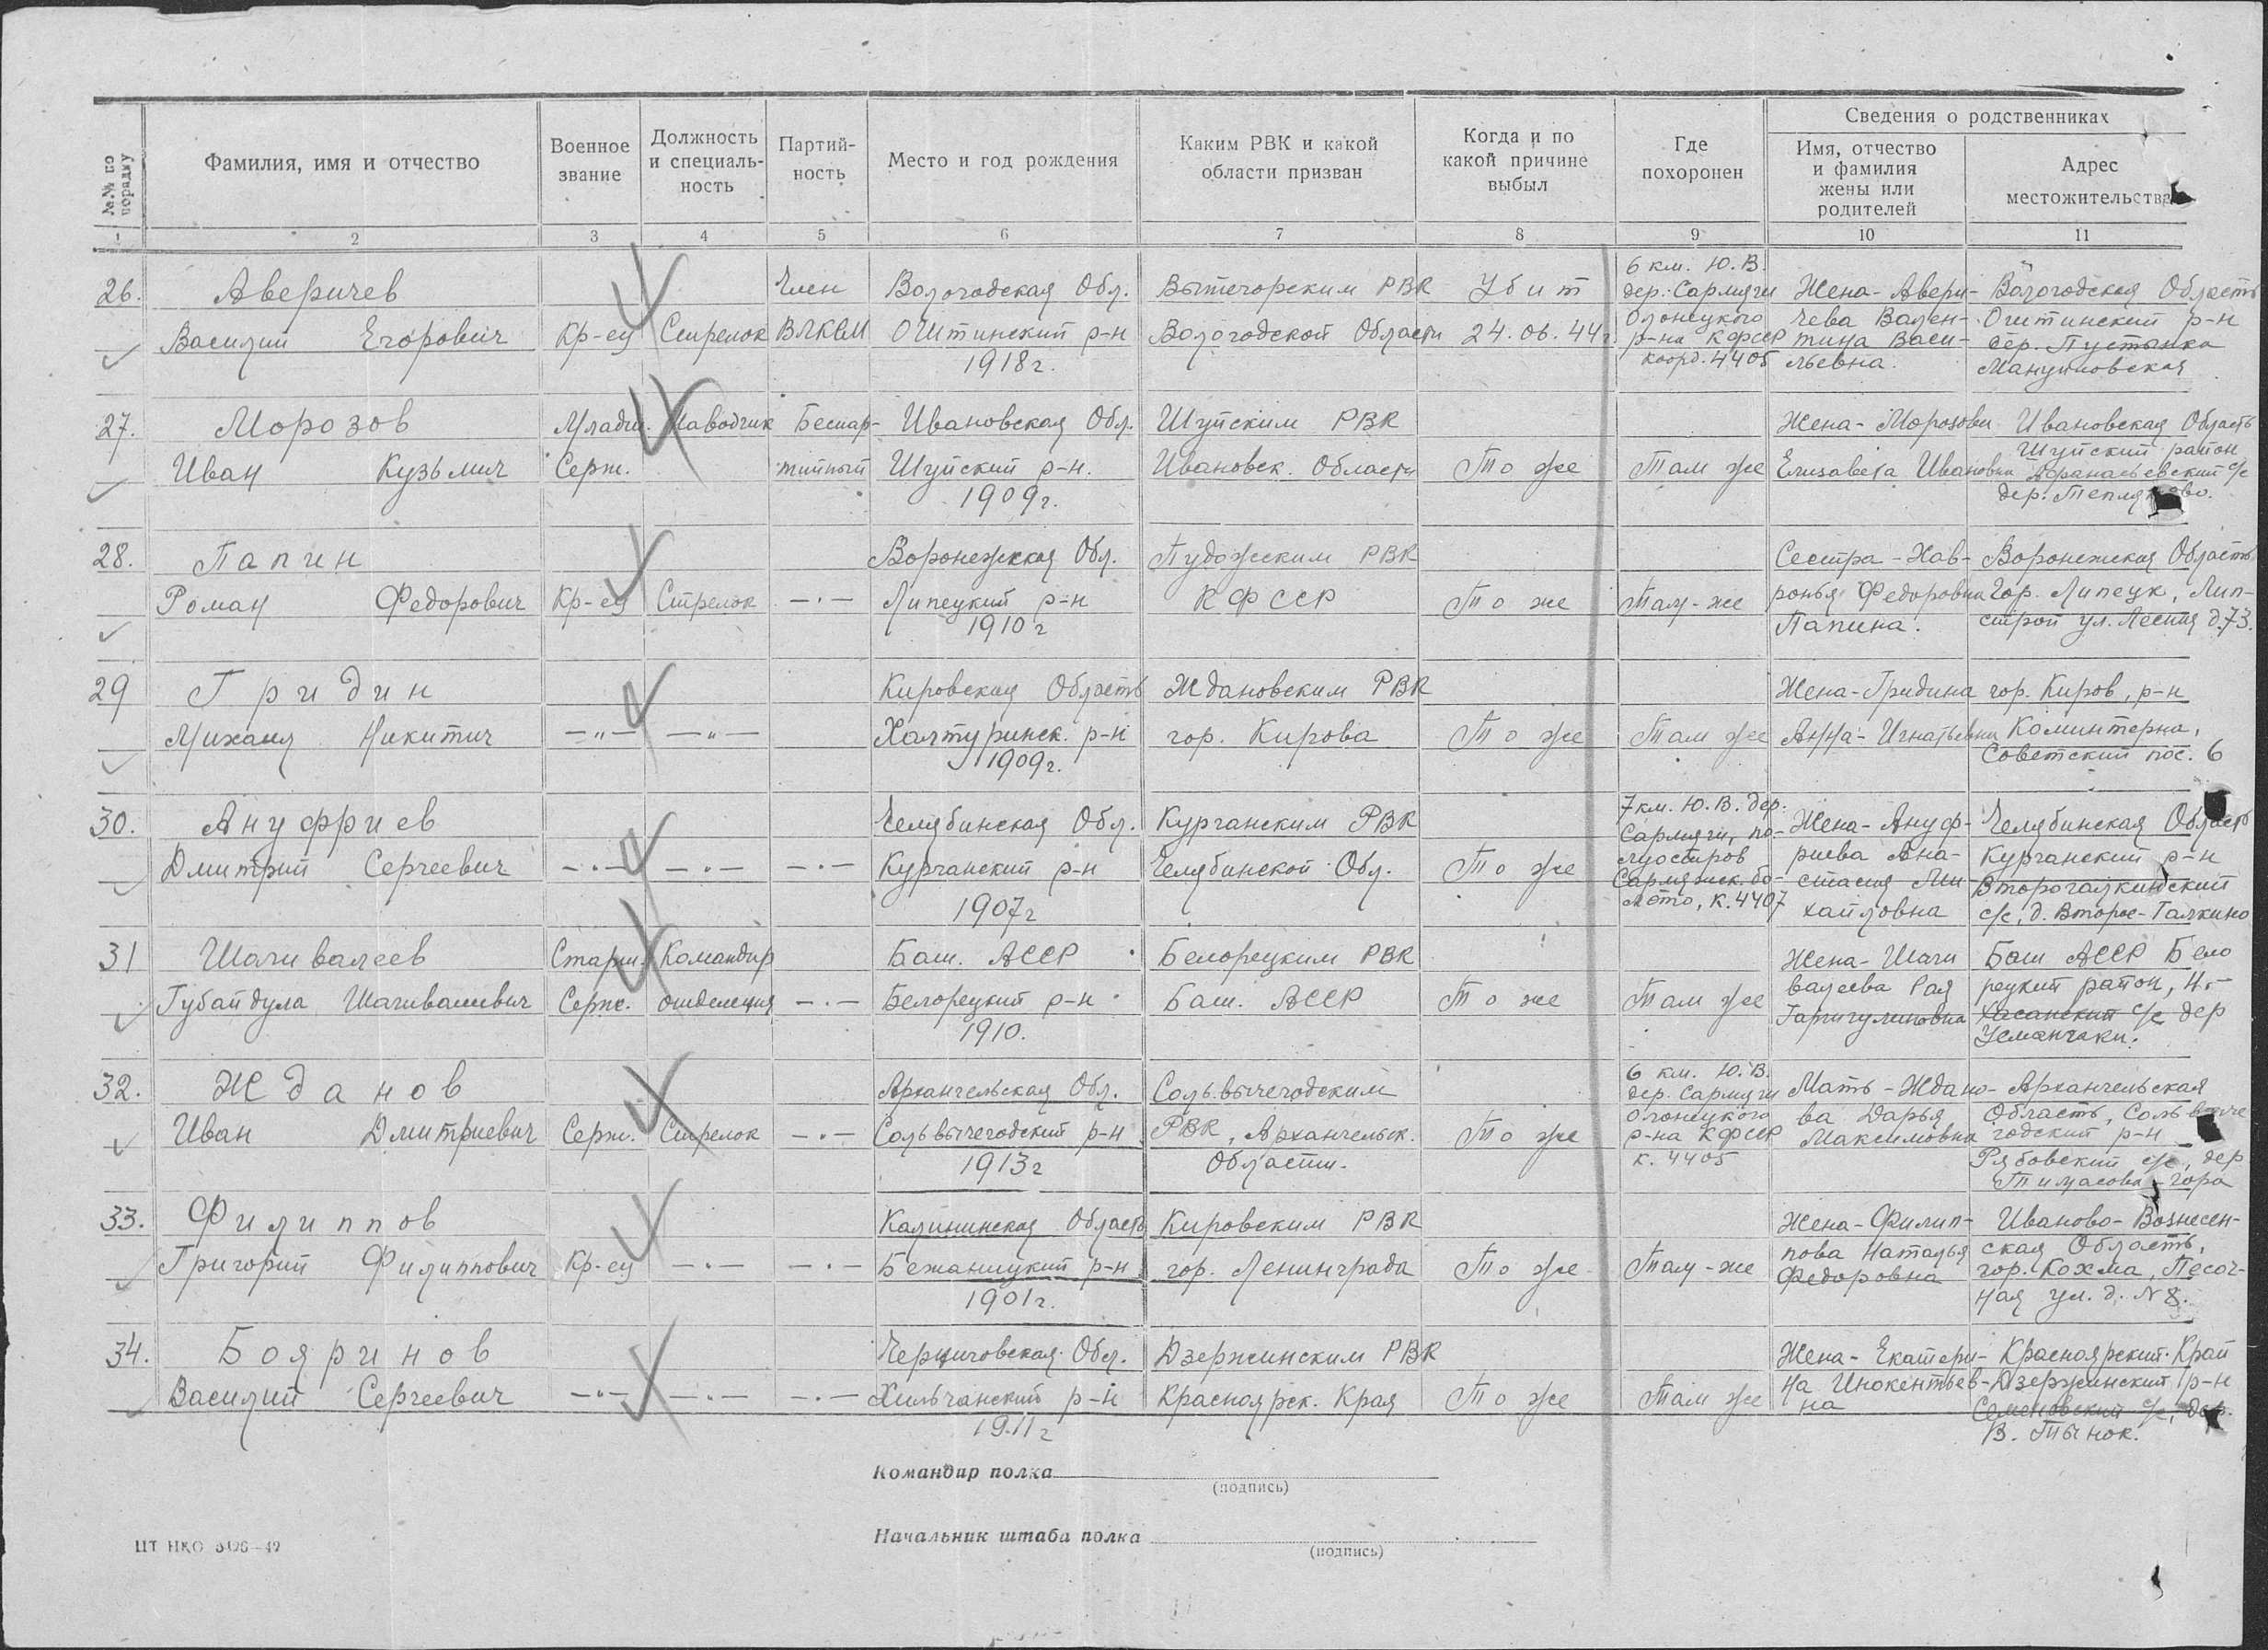 №№ по порядку
Фамилия, имя и отчество
Военное звание
Должность и специаль-ность
Партий-ность
Место и год рождения
Каким РВК и какой области призван
Когда и по какой причине выбыл
Где похоронен
Сведения о родственниках
Имя, отчество и фамилия жены или родителей
Адрес местожительства
1 2 3 4 5 6 7 8 9 10 11
26. Аверичев Василий Егорович
Кр-ец
Стрелок
Член ВЛКСМ
Вологодская Обл. Оштинский р-н 1918 г.
Вытегорским РВК Вологодской Области
Убит 24.06.44 г.
6 км. Ю.В. дер. Сармяги Олонецкого р-на КФССР коорд. 4405
Жена - Авери-чева Вален-тина Васи-льевна.
Вологодская Область Оштинский р-н дер. Пустынка Мануиловская
27. Морозов Иван Кузьмич
Младш. Серж.
Наводчик
Беспар-тийный
Ивановская Обл. Шуйский р-н. 1909 г.
Шуйским РВК Ивановск. Области
То же
Там же
Жена - Морозова Елизавета Ивановна
Ивановская Область Шуйский район Афанасьевский с/с дер.
28. Папин Роман Федорович
Кр-ец
Стрелок
—·—
Воронежская Обл. Липецкий р-н 1910 г
Пудожским РВК КФССР
То же
Там-же
Сестра - Хав-ронья Федоровна Папина.
Воронежская Область Гор. Липецк, Лип-строй ул. Лесная д.73.
29 Гридин Михаил Никитич
—"—
—"—
Кировская Область Халтуринск. р-н 1909 г.
Ждановским РВК гор. Кирова
То же
Там же
Жена - Гридина Анна - Игнатьевна
гор. Киров, р-н Коминтерна, Советский пос. 6
30. Ануфриев Дмитрий Сергеевич
—·—
—·—
—·—
Челябинская Обл. Курганский р-н 1907 г
Курганским РВК Челябинской Обл.
То же
7 км. Ю.В. дер. Сармяги, по-луостров Сармяжск. бо-лото, к. 4407
Жена - Ануф-риева Ана-стасия Ми-хайловна
Челябинская Область Курганский р-н Второгалкинский с/с, д. Второе-Галкино
31 Шагивалеев Губайдула Шагивалиевич
Старш. Серж.
Командир отделения
—·—
Баш. АССР Белорецкий р-н 1910.
Белорецким РВК Баш. АССР
То же
Там же
Жена - Шаги валеева Рая
Баш АССР Бело рецкий район, Н.- Хасанский с/с дер Усманчаки.
32. Жданов Иван Дмитриевич
Серж.
Стрелок
—·—
Архангельская Обл. Сольвычегодский р-н 1913 г
Сольвычегодским РВК, Архангельск. Области.
То же
6 км. Ю.В. дер. Сармяги Олонецкого р-на КФССР к. 4405
Мать - Ждано-ва Дарья Максимовна
Архангельская Область, Сольвыче годский р-н Рябовский с/с, дер Тимасова - гора
33. Филиппов Григорий Филиппович
Кр-ец
—·—
—·—
Калининская Область Бежаницкий р-н 1901 г.
Кировским РВК гор. Ленинграда
То же
Там-же
Жена - Филип-пова Наталья Федоровна
Иваново-Вознесен-ская Область, гор. Кохма, Песоч-ная ул. д. № 8.
34. Бояринов Василий Сергеевич
—"—
—·—
—·—
Черниговская Обл. Хильчанский р-н 1911 г
Дзержинским РВК Красноярск. Края
То же
Там же
Жена - Екатери-на Инокентьев-на
Красноярский Край Дзержинский р-н Семеновский с/с, дер. В. Тынок.
Командир полка
(подпись)
Начальник штаба полка
(подпись)
ЦТ НКО